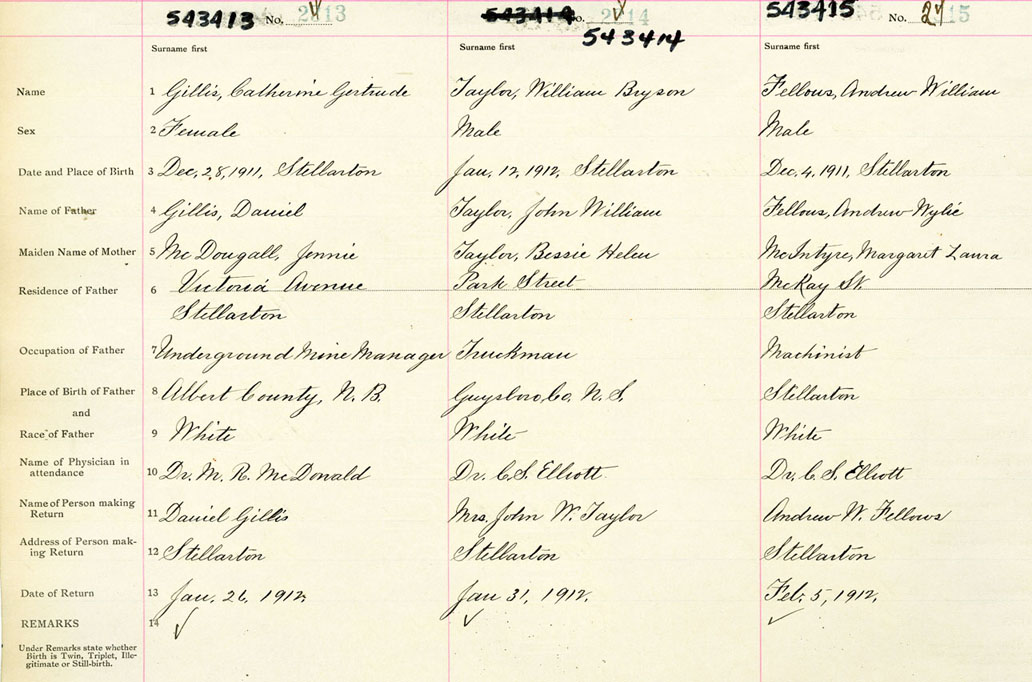 543413 No. 2813 543414 No. 2814 543415 No. 2815
543414
Surname first Surname first Surname first
Name 1 Gillis, Catherine Gertrude Taylor, William Bryson Fellows, Andrew William
Sex 2 Female Male Male
Date and Place of Birth 3 Dec. 28, 1911, Stellarton Jan. 12, 1912, Stellarton Dec. 4, 1911, Stellarton
Name of Father 4 Gillis, Daniel Taylor, John William Fellows, Andrew Wylie
Maiden Name of Mother 5 McDougall, Jennie Taylor, Bessie Helen McIntyre, Margaret Laura
Residence of Father 6 Victoria Avenue Park Street McKay St.
Stellarton Stellarton Stellarton
Occupation of Father 7 Underground Mine Manager Truckman Machinist
Place of Birth of Father 8 Albert County, N. B. Guysboro Co. N. S. Stellarton
and
Race of Father 9 White White White
Name of Physician in
attendance 10 Dr. M. R. McDonald Dr. C. S. Elliott Dr. C. S. Elliott
Name of Person making
Return 11 Daniel Gillis Mrs. John W. Taylor Andrew W. Fellows
Address of Person mak-
ing Return 12 Stellarton Stellarton Stellarton
Date of Return 13 Jan. 26, 1912. Jan 31, 1912. Feb. 5, 1912.
REMARKS 14
Under Remarks state whether
Birth is Twin, Triplet, Ille-
gitimate or Still-birth.